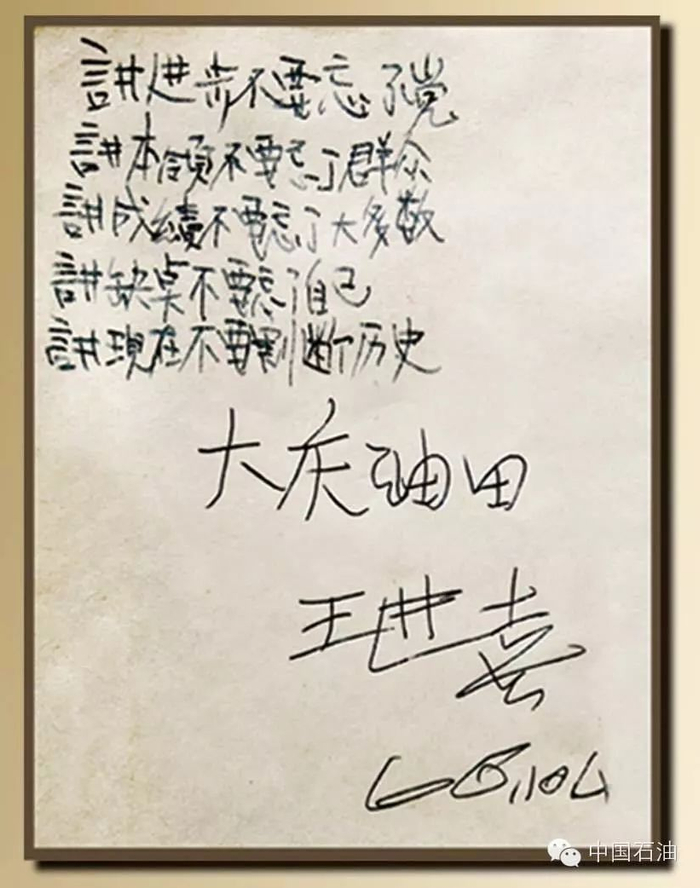 讲进步不要忘了党
讲本领不要忘了群众
讲成績不要忘了大多数
讲缺点不要忘了自己
讲現在不要割断历史
大庆油田
王进喜
中国石油